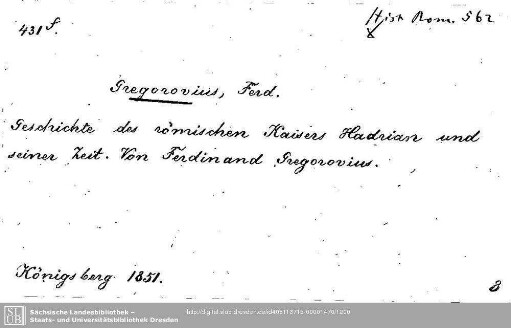 431 f.
Hist. Rom. 562
Gregorovius, Ferd.
Geschichte des römischen Kaisers Hadrian und
seiner Zeit. Von Ferdinand Gregorovius.
Königsberg 1851.
8
SLUB
Sächsische Landesbibliothek –
Staats- und Universitätsbibliothek Dresden